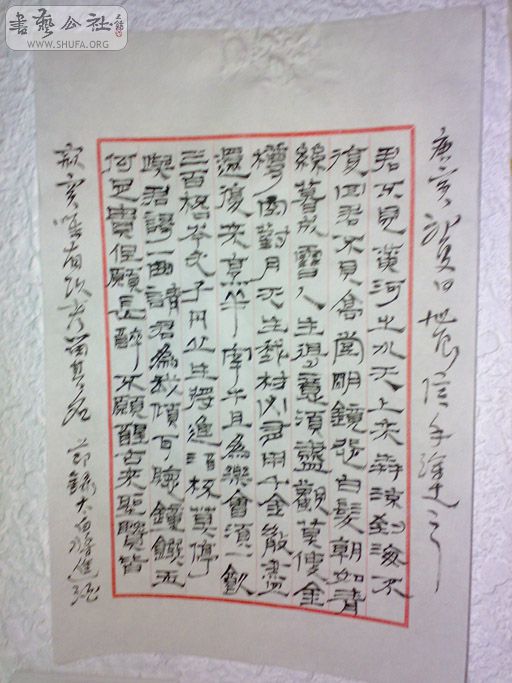 書藝公社
WWW.SHUFA.ORG
庚寅初夏日信手塗之
君不見黃河之水天上來奔流到海不
復回君不見高堂明鏡悲白髮朝如青
絲暮成雪人生得意須盡歡莫使金
樽空對月天生我材必有用千金散盡
還復來烹羊宰牛且為樂會須一飲
三百杯岑夫子丹丘生將進酒杯莫停
與君歌一曲請君為我傾耳聽鐘饌玉
何足貴但願長醉不願醒古來聖賢皆
寂寞唯有飲者留其名 節錄太白將進酒